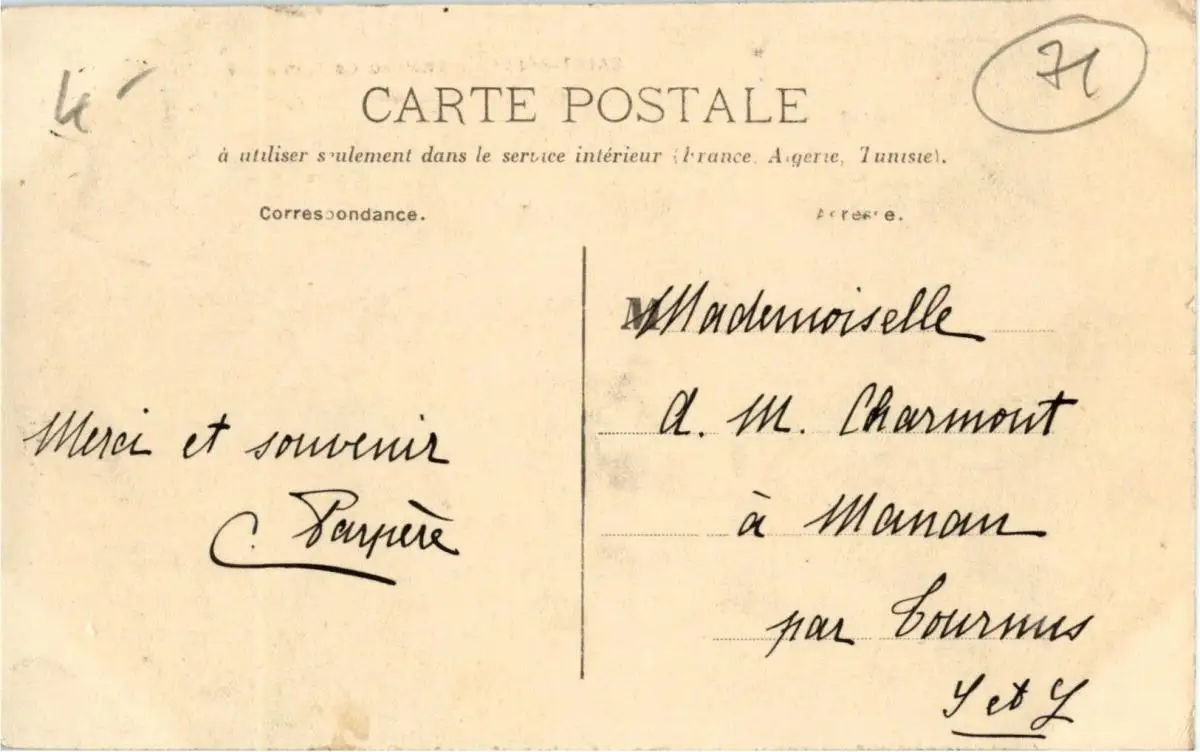 71
4
CARTE POSTALE
à utiliser seulement dans le service intérieur (France, Algérie, Tunisie).
Correspondance.
Adresse.
Mademoiselle
A. M. Charmont
à Manan
par Tournus
S et L
Merci et souvenir
C. Parpère